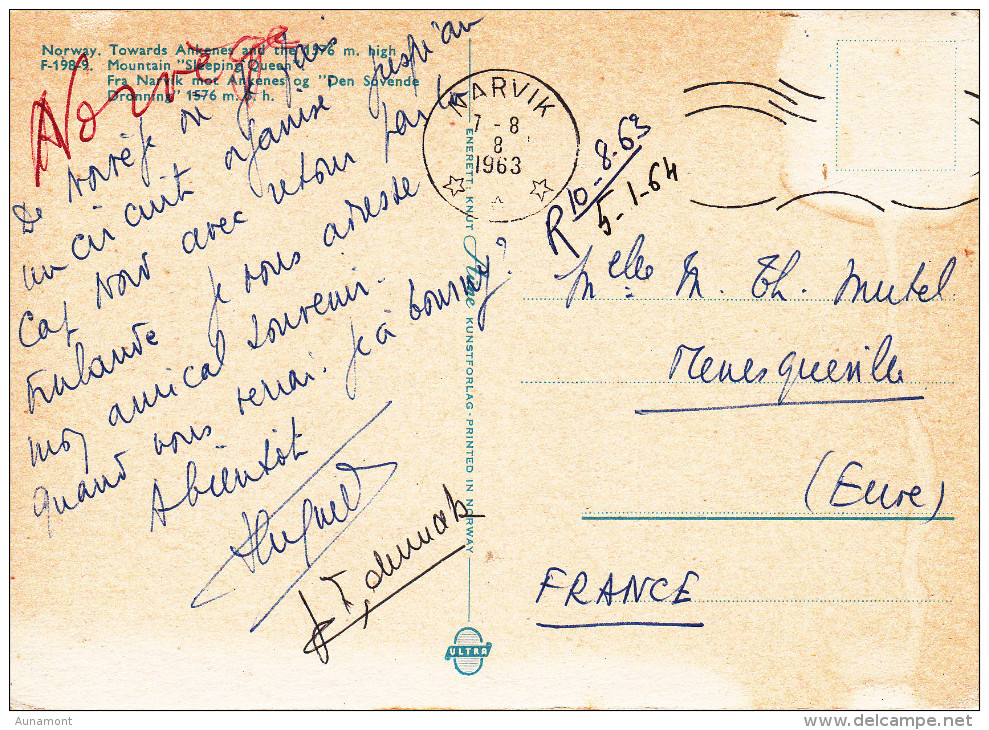 Norway. Towards Ankenes and the 1576 m. high
F-198-9. Mountain "Sleeping Queen"
Fra Narvik mot Ankenes og "Den Sovende
Dronning" 1576 m. o. h.
Norvège
De Norvège où je fais
un circuit organisé jusqu'au
Cap Nord avec retour par la
Finlande je vous adresse
mon amical souvenir.
quand vous verrai-je à
A bientôt
NARVIK
7-8
8
1963
R 10-8-63
5-1-64
ENERETT: KNUT Aune KUNSTFORLAG - PRINTED IN NORWAY
ULTRA
Melle M. Th. Mutel
Menesqueville
(Eure)
FRANCE
Aunamont
www.delcampe.net